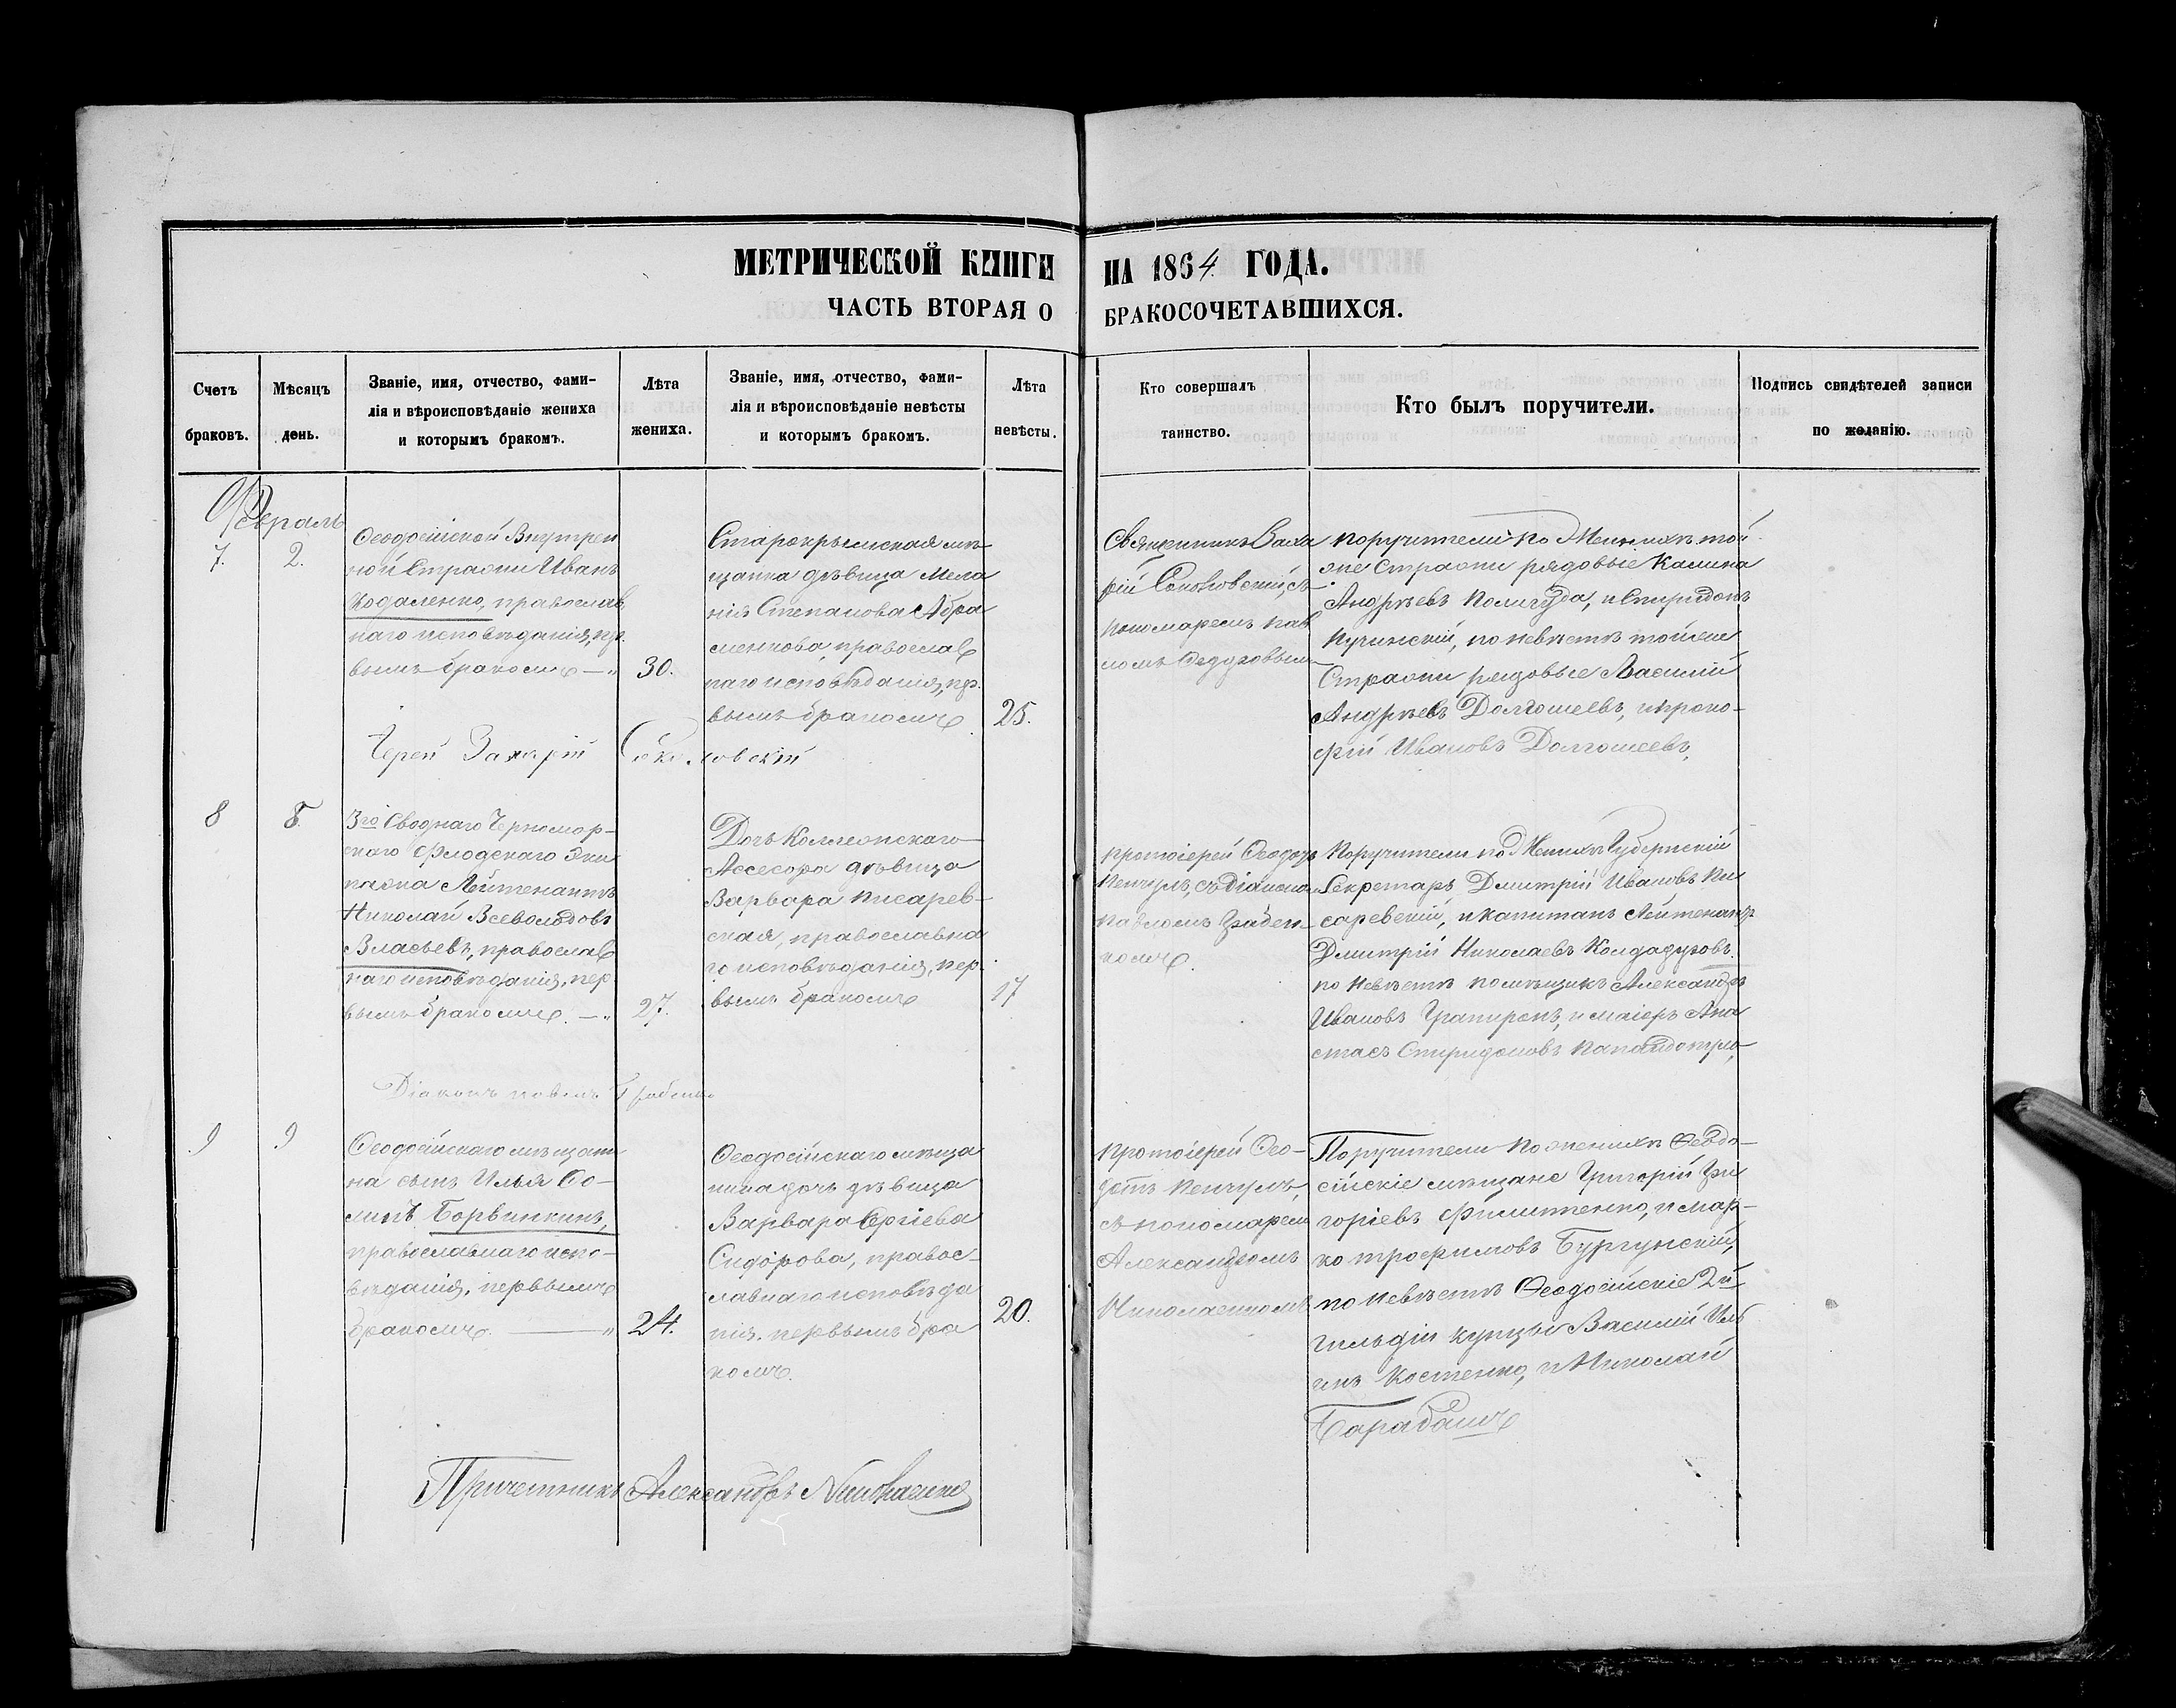 МЕТРИЧЕСКОЙ КНИГИ НА 1864 ГОДА.
ЧАСТЬ ВТОРАЯ О БРАКОСОЧЕТАВШИХСЯ.
Счетъ браковъ.
Мѣсяцъ день.
Званіе, имя, отчество, фами-
лія и вѣроисповѣданіе жениха
и которымъ бракомъ.
Лѣта жениха.
Званіе, имя, отчество, фами-
лія и вѣроисповѣданіе невѣсты
и которымъ бракомъ.
Лѣта невѣсты.
Кто совершалъ
таинство.
Кто былъ поручители.
Подпись свидѣтелей записи
по желанію.
Февраль
7.
2.
Ѳеодосійской Внутрен
ной Стражи Иванъ
Кодаленко, православ
наго исповѣданія, пер.
вымъ бракомъ
30.
Старокрымская мѣ
щанка дѣвица Мела
нія Степанова Абра
менкова, православ
наго исповѣданія, пер.
вымъ бракомъ
25.
Священникъ Заха
рій Соколовскій, съ
пономаремъ Пав
ломъ
Поручители по Женихѣ той
же Стражи рядовые Калина
Андреевъ и Спиридонъ
Пучинскій, по невѣстѣ той же
Стражи рядовые Василій
Андреевъ Долгошеевъ, и Проко-
фій Ивановъ Долгошеевъ,
Іерей Захарій Соколовскій
8
5.
3го Своднаго Черномор-
скаго Флодскаго Эки
пажа Лейтенантъ
Николай Всеволодовъ
Власьевъ, православ
наго исповѣданія, пер
вымъ бракомъ.
27.
Дочь Коллежскаго
Ассесора дѣвица
Варвара Писарев-
ская, православна
го исповѣданія, пер.
вымъ бракомъ
17
Протоіерей Ѳеодотъ
Кенчулъ, съ Діакона
Павломъ Грабен
комъ.
Поручители по Женихѣ Губернскій
Секретарь Дмитрій Ивановъ Пи
саревскій, и Капитанъ Лейтенантъ
Дмитрій Николаевъ
по Невѣстѣ помѣщикъ Александръ
Ивановъ и маіоръ Ана
стасъ Спиридоновъ
Діаконъ Павелъ Грабенко
9
9
Ѳеодосійскаго мѣщани
на сынъ Илья Ѳо-
минъ Борвинкинъ,
православнаго испо-
вѣданія, первымъ
бракомъ.
24.
Ѳеодосійскаго мѣща
нина дочь дѣвица
Варвара Сергіева
Сидорова, правос-
лавнаго исповѣда
нія. первымъ бра
комъ.
20.
Протоіерей Ѳео-
дотъ Кенчулъ,
съ пономаремъ
Александромъ
Николаенкомъ
Поручители по женихѣ Ѳеодо-
сійскіе мѣщане Григорій Гри
горіевъ Филипенко, и Мар-
ко Трофимовъ Бургунскій,
по невѣстѣ Ѳеодосійскіе 2й
гильдіи купцы Василій Иль
инъ Костенко, и Николай
Барабашъ
Причетникъ Александръ Николаенко